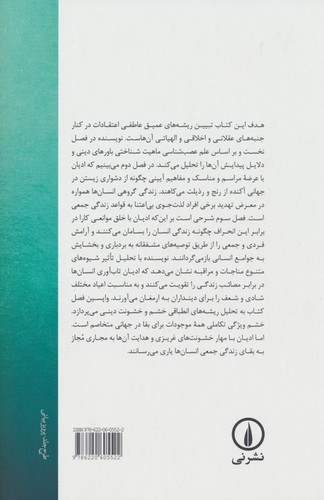 هدف این کتاب تبیین ریشه‌های عمیق عاطفی اعتقادات در کنار
جنبه‌های عقلانی و اخلاقی و الهیاتی آن‌هاست. نویسنده در فصل
نخست و بر اساس علم عصب‌شناسی ماهیت شناختی باورهای دینی و
دلایل پیدایش آن‌ها را تحلیل می‌کند. در فصل دوم می‌بینیم که ادیان
با عرضهٔ مراسم و مناسک و مفاهیم آیینی چگونه از دشواری زیستن در
جهانی آکنده از رنج و رذیلت می‌کاهند. زندگی گروهی انسان‌ها همواره
در معرض تهدید برخی افراد لذت‌جوی بی‌اعتنا به قواعد زندگی جمعی
است. فصل سوم شرحی است بر این‌که ادیان با خلق موانعی کارا در
برابر این انحراف چگونه زندگی انسان را بسامان می‌کنند و آرامش
فردی و جمعی را از طریق توصیه‌های مشفقانه به بردباری و بخشایش
به جوامع انسانی بازمی‌گردانند. نویسنده با تحلیل تأثیر شیوه‌های
متنوع مناجات و مراقبه نشان می‌دهد که ادیان تاب‌آوری انسان‌ها را
در برابر مصائب زندگی را تقویت می‌کنند و به مناسبت اعیاد مختلف
شادی و شعف را برای دینداران به ارمغان می‌آورند. واپسین فصل
کتاب به تحلیل ریشه‌های انطباقی خشم و خشونت دینی می‌پردازد.
خشم ویژگی تکاملی همهٔ موجودات برای بقا در جهانی متخاصم است.
اما ادیان با مهار خشونت‌های غریزی و هدایت آن‌ها به مجاری مُجاز
به بقای زندگی جمعی انسان‌ها یاری می‌رسانند.
طرح جلد: پرویز بیانی
ISBN: 978-622-06-0552-2
9 786220 605522
نشرنی